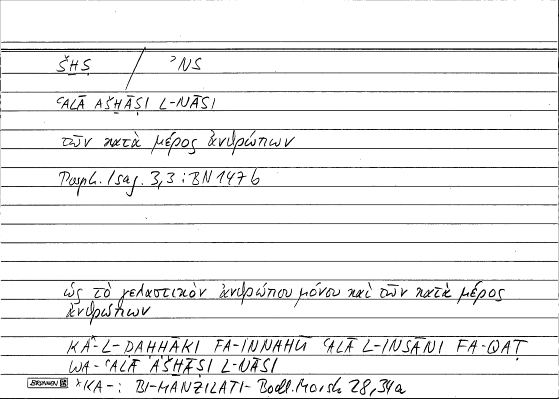 ŠḪṢ / ʾNS
ʿALĀ AŠḪĀṢI L-NĀSI
τῶν κατὰ μέρος ἀνθρώπων
Porph. Isag. 3,3 : BN 147b
ὡς τὸ γελαστικὸν ἀνθρώπου μόνου καὶ τῶν κατὰ μέρος
ἀνθρώπων
KAˣ-L-ḌAḤḤĀKI FA-INNAHŪ ʿALĀ L-INSĀNI FA-QAṬ
WA-ʿALĀ AŠḪĀṢI L-NĀSI
BRUNNEN ˣKA-: BI-MANZILATI- Bodl. Marsh 28,34a